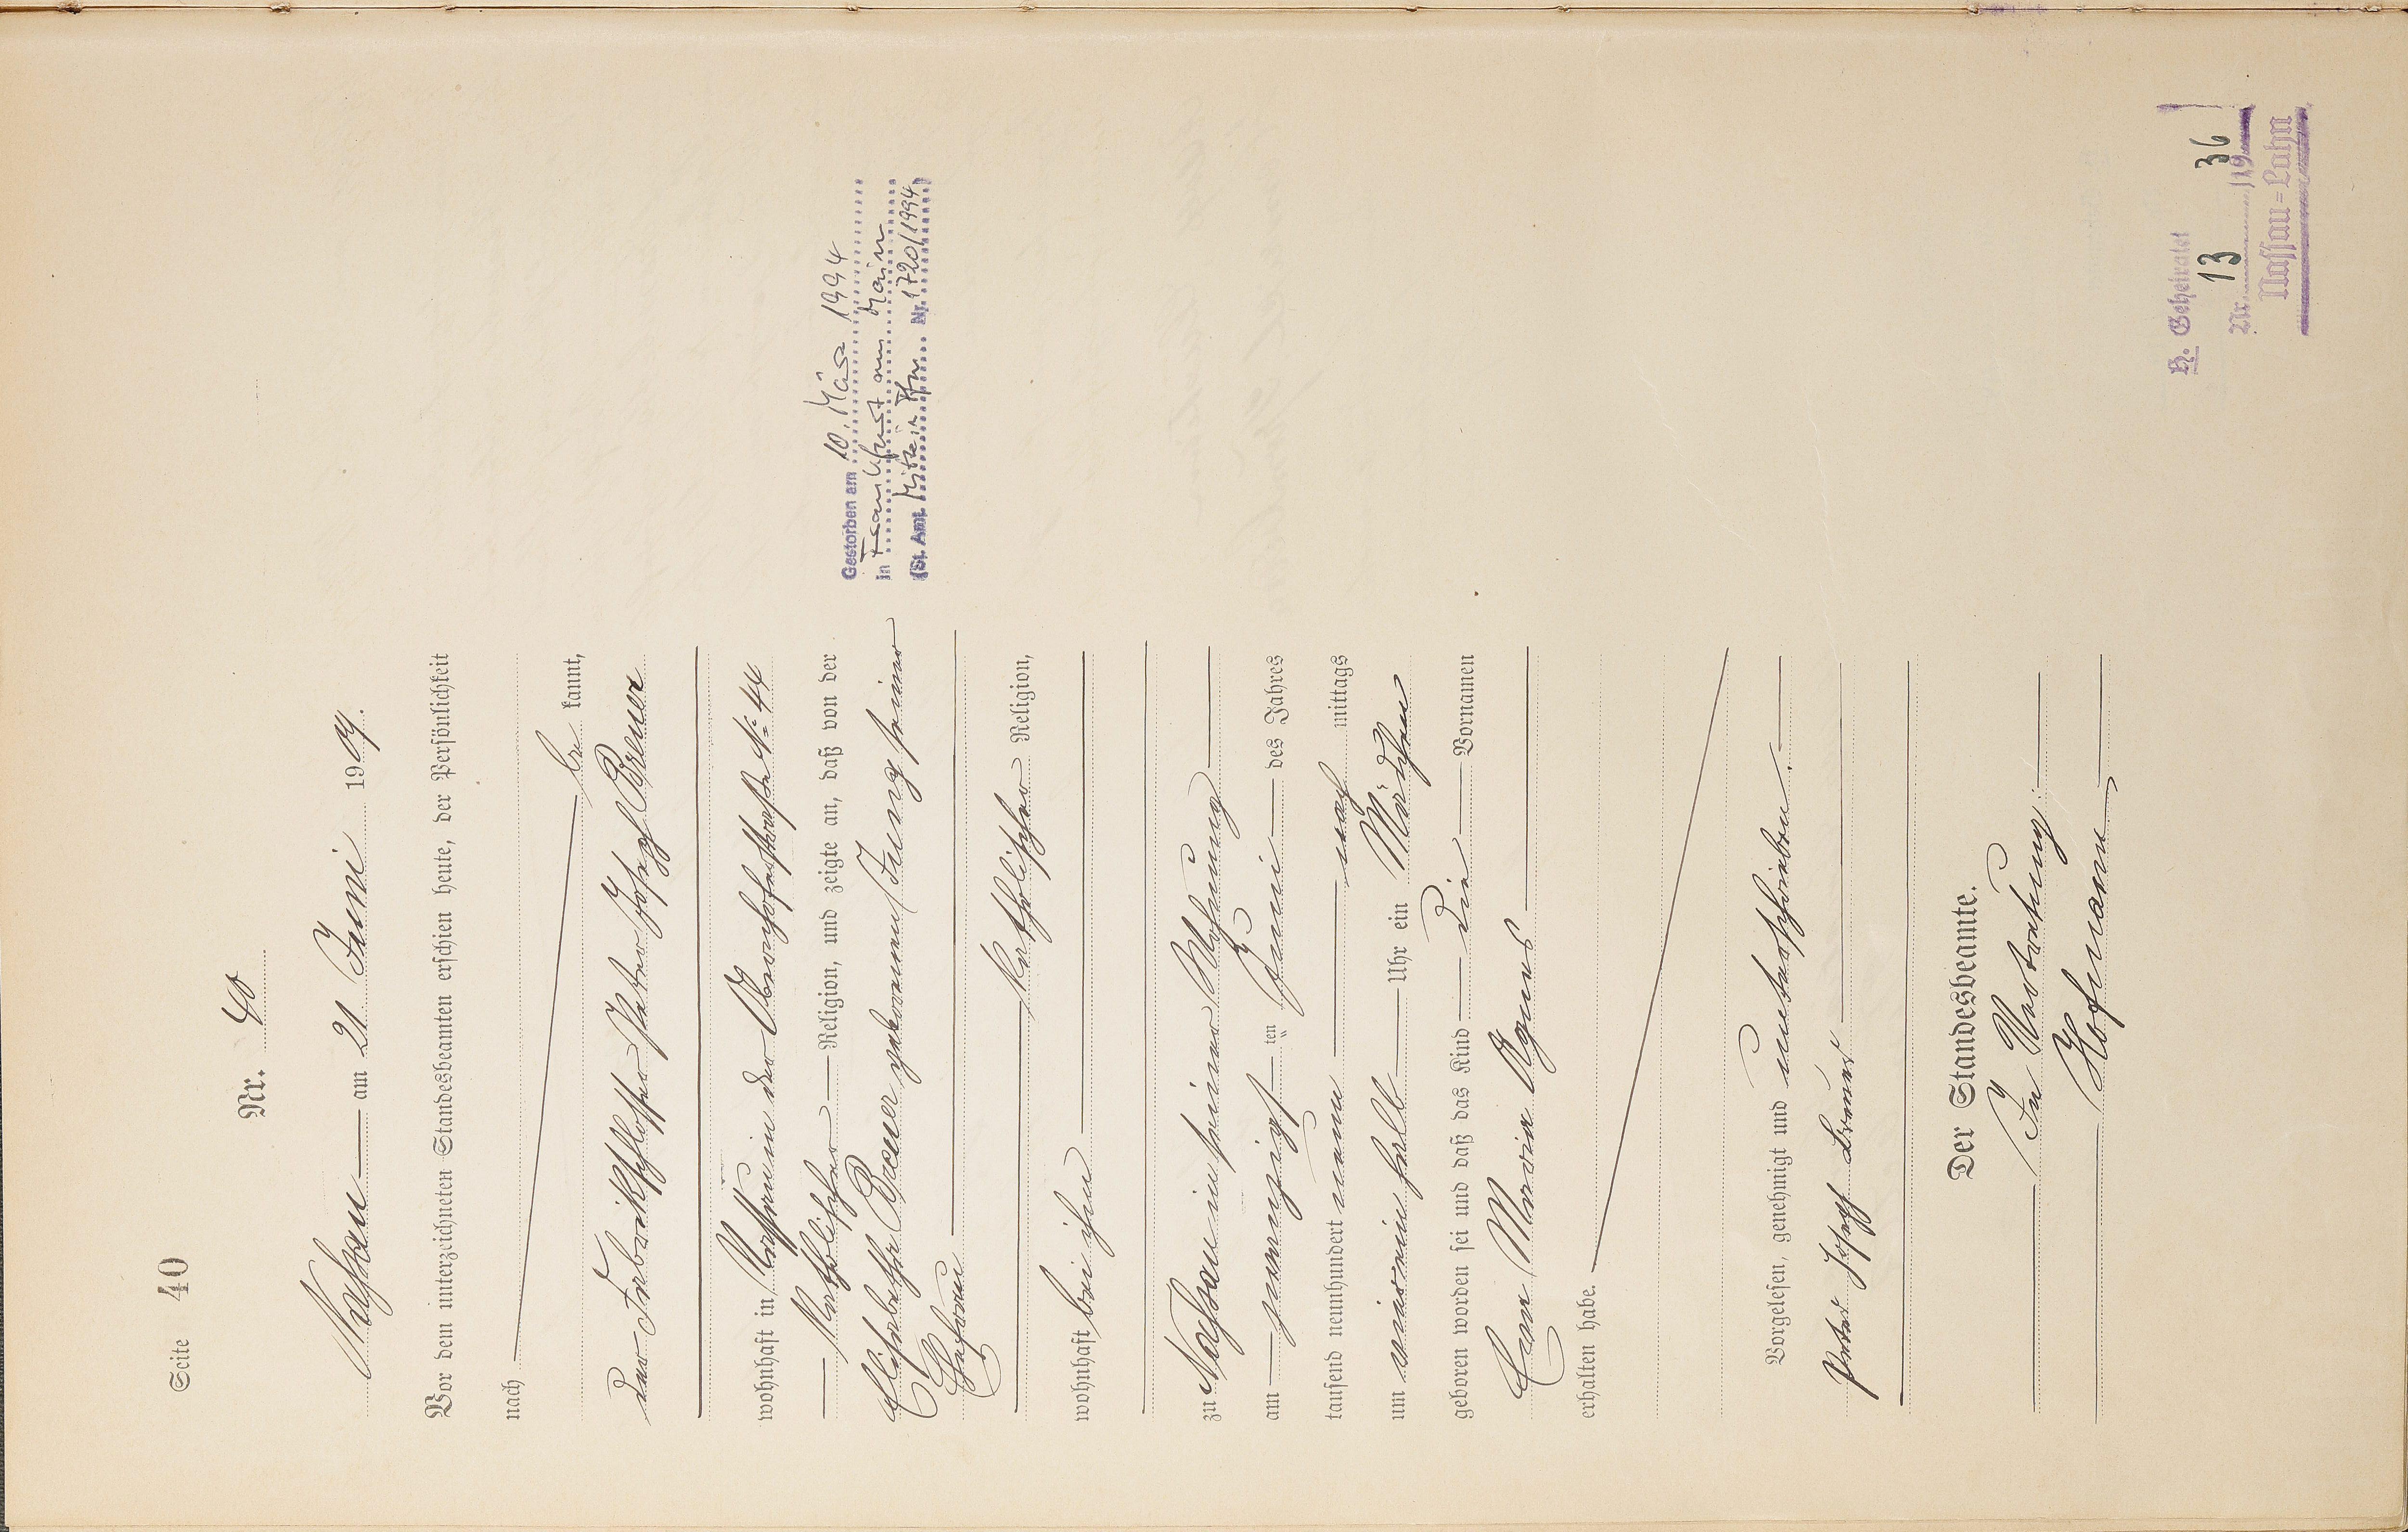 Seite 40
Nr. 40
Nassau am 21 Juni 1909.
Vor dem unterzeichneten Standesbeamten erschien heute, der Persönlichkeit
nach
be kannt,
der Fabrikschlosser Peter Joseph Breuer
wohnhaft in Nassau in der Oberhoferstraße No 44
katholischer Religion, und zeigte an, daß von der
Elisabetha Breuer geborenen Jung seiner
Ehefrau
katholischer Religion,
wohnhaft bei ihm
zu Nassau in seiner Wohnung
am zwanzigsten Juni des Jahres
tausend neunhundert neun nach mittags
um ein halb Uhr ein Mädchen
geboren worden sei und daß das Kind die Vornamen
Maria Agnes
erhalten habe.
Vorgelesen, genehmigt und unterschrieben.
Peter Joseph Breuer
Der Standesbeamte.
In Vertretung:
Hofmann
Gestorben am 10. März 1994
in Frankfurt am Main
(St. Amt Mitte in Ffm. Nr. 1720/1994)
B. Geheiratet
Nr. 13 / 1936
Nassau=Lahn